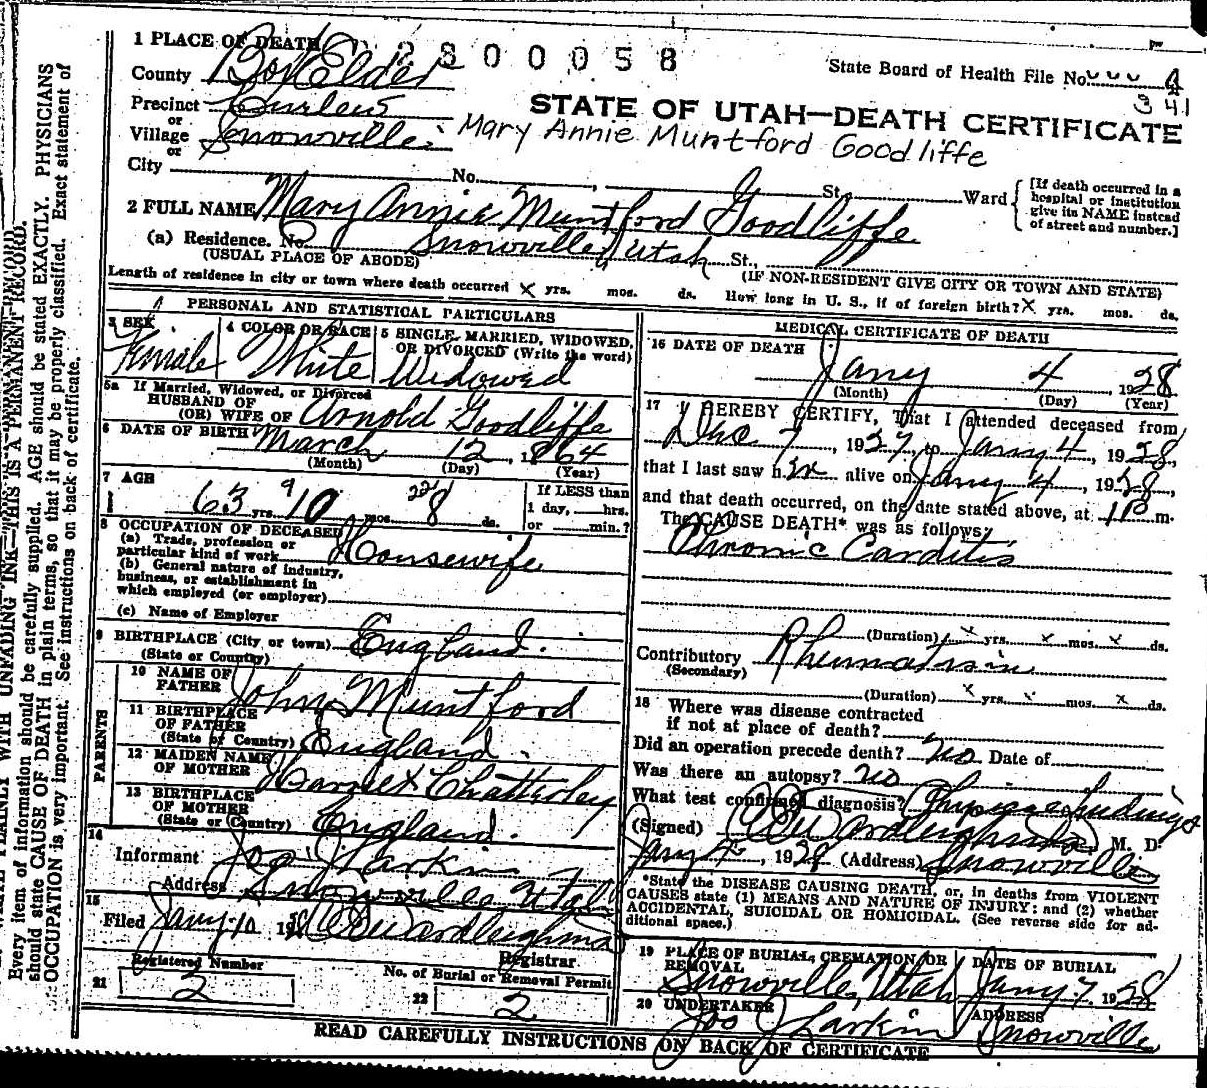 1 PLACE OF DEATH 2800058
County Box Elder State Board of Health File No. 4
341
Precinct Curlew
or
STATE OF UTAH—DEATH CERTIFICATE
Village Snowville
or
Mary Annie Muntford Goodliffe
City No. , St. Ward [If death occurred in a hospital or institution give its NAME instead of street and number.]
2 FULL NAME Mary Annie Muntford Goodliffe
(a) Residence. No. Snowville, Utah St.,
(USUAL PLACE OF ABODE) (IF NON-RESIDENT GIVE CITY OR TOWN AND STATE)
Length of residence in city or town where death occurred x yrs. mos. ds. How long in U. S., if of foreign birth? x yrs. mos. ds.
PERSONAL AND STATISTICAL PARTICULARS
3 SEX
Female
4 COLOR OR RACE
White
5 SINGLE, MARRIED, WIDOWED,
OR DIVORCED (Write the word)
Widowed
5a If Married, Widowed, or Divorced
HUSBAND OF
(OR) WIFE OF Arnold Goodliffe
6 DATE OF BIRTH March 12, 1864
(Month) (Day) (Year)
7 AGE
63 yrs. 9 10 mos. 22 8 ds.
If LESS than
1 day, hrs.
or min.?
8 OCCUPATION OF DECEASED
(a) Trade, profession or
particular kind of work Housewife
(b) General nature of industry,
business, or establishment in
which employed (or employer)
(c) Name of Employer
9 BIRTHPLACE (City or town) England.
(State or Country)
PARENTS
10 NAME OF
FATHER John Muntford
11 BIRTHPLACE
OF FATHER
(State or Country) England.
12 MAIDEN NAME
OF MOTHER Harriet Chatterley
13 BIRTHPLACE
OF MOTHER
(State or Country) England.
14
Informant Jos J Larkin
Address Snowville Utah
15
Filed Jany 10 1928
Registrar.
Registered Number
21 2
No. of Burial or Removal Permit
22 2
MEDICAL CERTIFICATE OF DEATH
16 DATE OF DEATH
Jany 4, 1928
(Month) (Day) (Year)
17 I HEREBY CERTIFY, That I attended deceased from
Dec 7, 1927, to Jany 4, 1928,
that I last saw her alive on Jany 4, 1928,
and that death occurred, on the date stated above, at 11 P m.
The CAUSE DEATH* was as follows:
Chronic Carditis
(Duration) x yrs. x mos. x ds.
Contributory Rheumatism
(Secondary)
(Duration) x yrs. x mos. x ds.
18 Where was disease contracted
if not at place of death?
Did an operation precede death? No Date of
Was there an autopsy? No
What test confirmed diagnosis?
(Signed) M. D.
Jany, 1928 (Address) Snowville
*State the DISEASE CAUSING DEATH, or, in deaths from VIOLENT
CAUSES state (1) MEANS AND NATURE OF INJURY; and (2) whether
ACCIDENTAL, SUICIDAL OR HOMICIDAL. (See reverse side for ad-
ditional space.)
19 PLACE OF BURIAL, CREMATION, OR
REMOVAL
Snowville, Utah
DATE OF BURIAL
Jany 7 1928
20 UNDERTAKER
Jos J Larkin
ADDRESS
Snowville
READ CAREFULLY INSTRUCTIONS ON BACK OF CERTIFICATE
WITH UNFADING INK—THIS IS A PERMANENT RECORD.
Every item of information should be carefully supplied. AGE should be stated EXACTLY. PHYSICIANS
should state CAUSE OF DEATH in plain terms, so that it may be properly classified. Exact statement of
OCCUPATION is very important. See instructions on back of certificate.